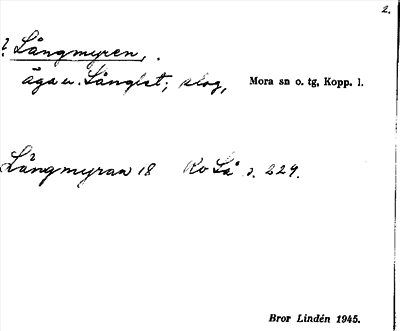 2.
? Långmyren,.
äga v. Långlet; slog, Mora sn o. tg, Kopp. l.
Långmyran 18 Ro Lå s. 229.
Bror Lindén 1945.